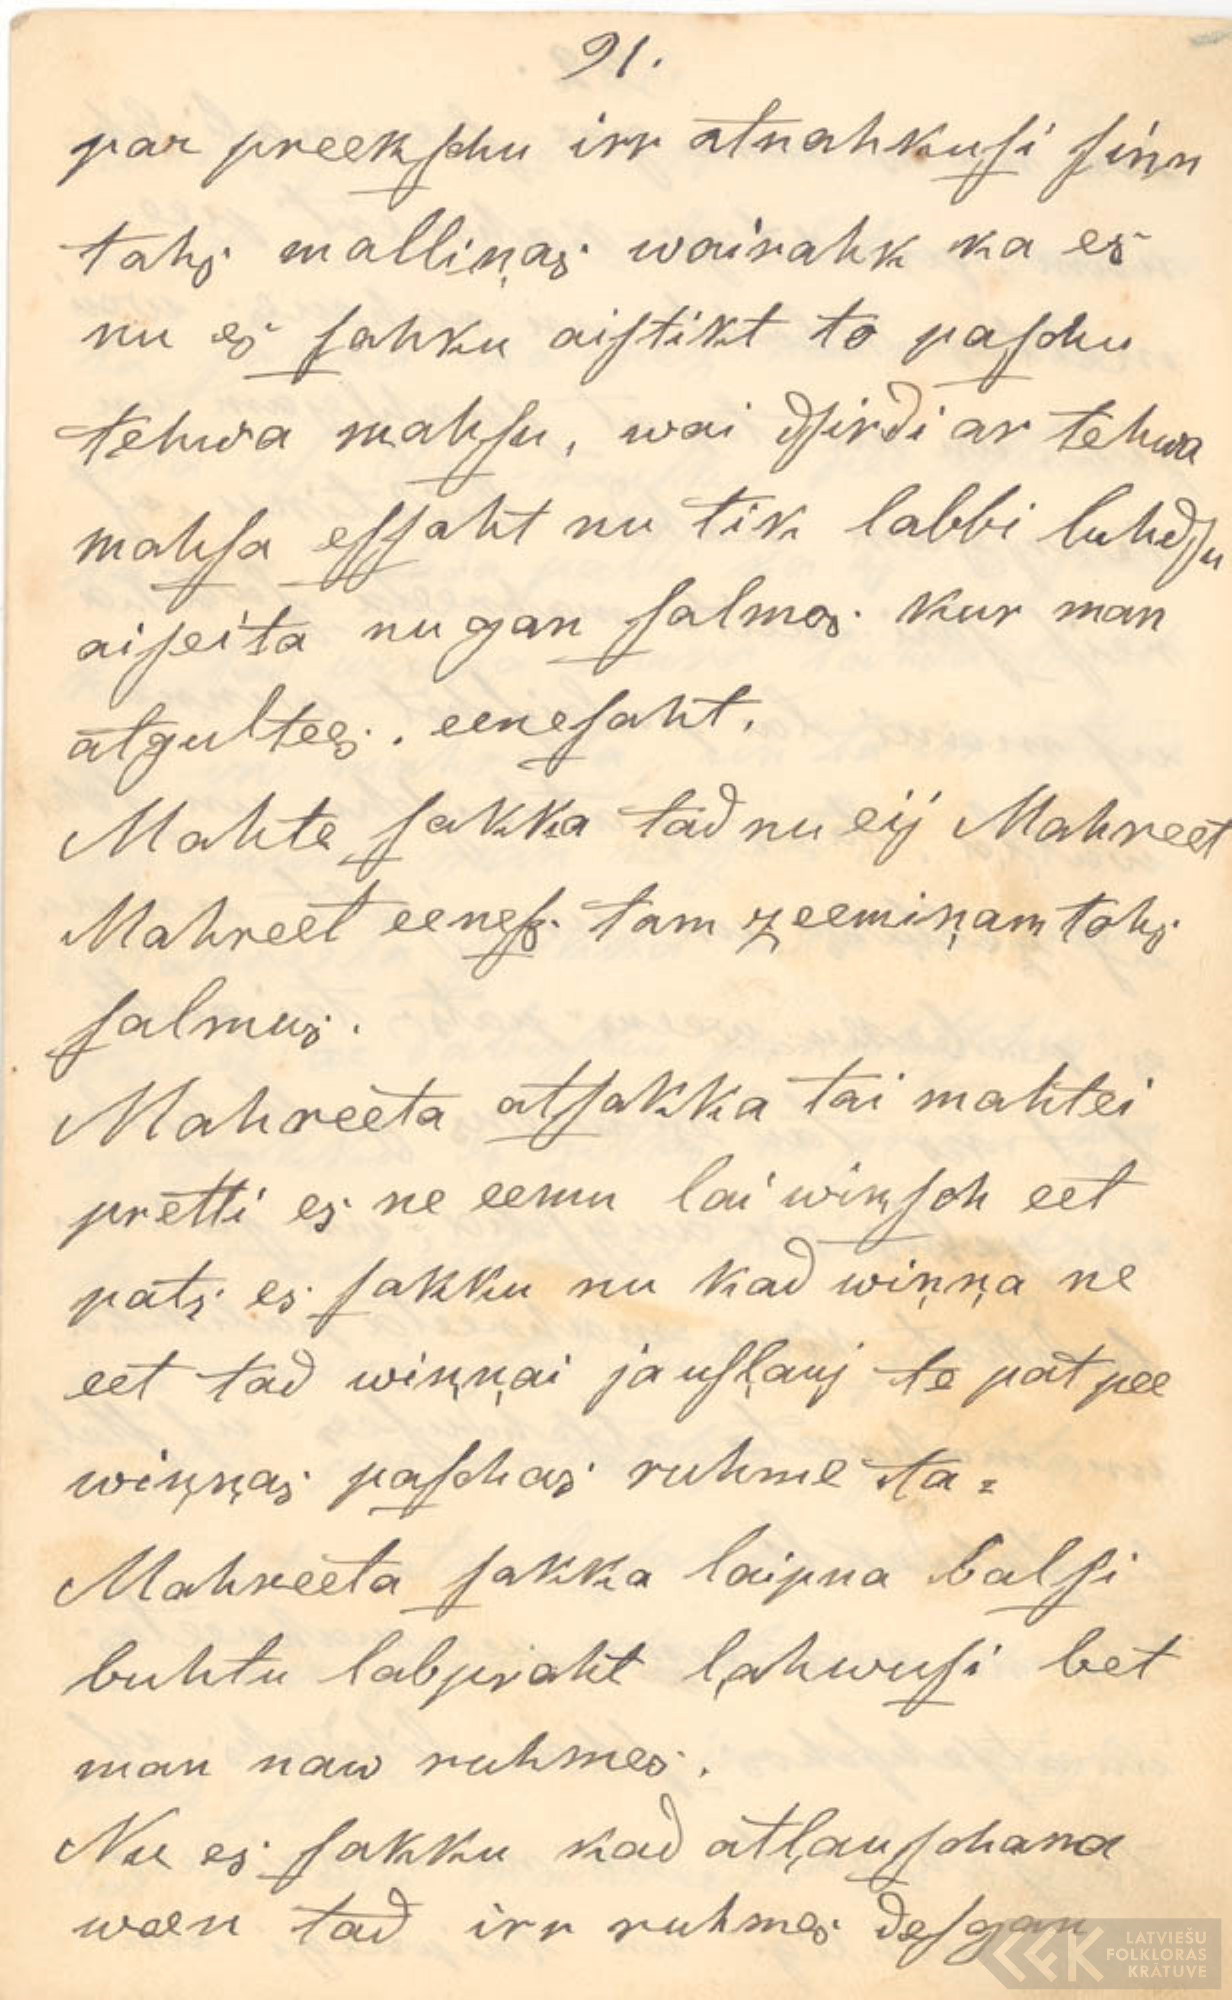 91.
par preekſchu irr atnahkuſi ſinn
tahs malliņas wairahk ka es
nu es ſahku aiſtikt to paſchu
tehwa mahſu, wai dſirdi ar tehwa
mahſa eſſaht nu tik labbi luhdſu
aiſeita nu gan ſalmos kur man
atgultees. eeneſaht.
Mahte ſakka tad nu eij Mahreet
Mahreet eeneſs tam zeemiņam tohs
ſalmus.
Mahreeta atſakka tai mahtei
pretti es ne eemu lai wiņſch eet
pats es ſakku nu kad wiņņa ne
eet tad wiņņai ja uſļauj te pat pee
wiņņas paſchas ruhmeta=
Mahreeta ſakka laipna balſi
buhtu labpraht ļahwuſi bet
man naw ruhmes.
Nu es ſakku kad atļauſchana
ween tad irr ruhmes deſgan
LATVIEŠU
FOLKLORAS
KRĀTUVE